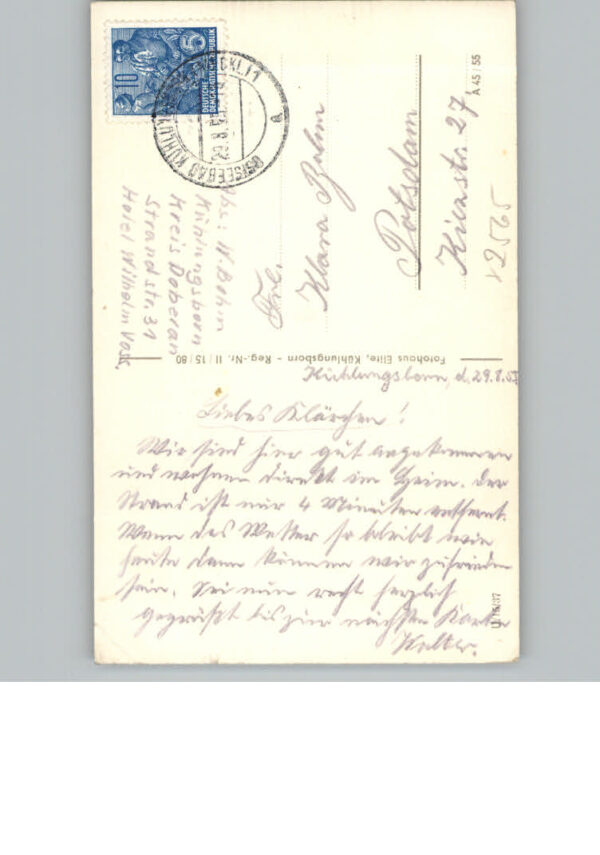 10
DEUTSCHE
DEMOKRATISCHE REPUBLIK
OSTSEEBAD KÜHLUNGSBORN
29.8.
a
Abs: W. Bohm
Kühlungsborn
Kreis Doberan
Strandstr. 31
Hotel Wilhelm Voss.
Frl.
Klara Bohm
Potsdam
Kiezstr. 27
A 45/55
Fotohaus Elite, Kühlungsborn - Reg.-Nr. II/15/80
Kühlungsborn, d. 29.8.
Liebes Klärchen!
Wir sind hier gut angekommen
und wohnen direkt im Heim. Der
Strand ist nur 4 Minuten entfernt.
Wenn das Wetter so bleibt wie
heute dann können wir zufrieden
sein. Sei nun recht herzlich
gegrüßt bis zur nächsten Karte